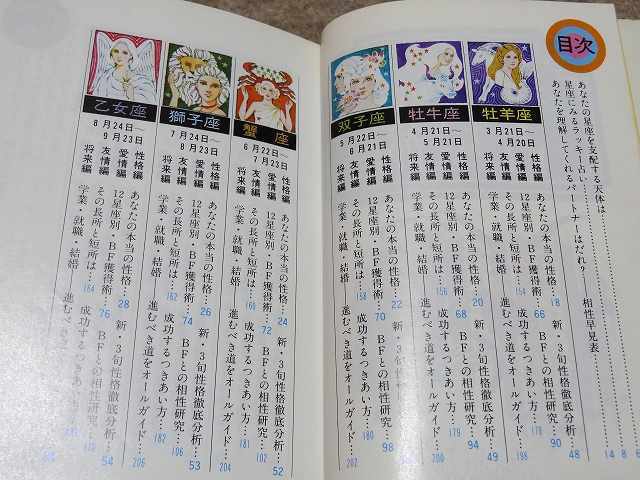 目次
あなたの星座を支配する天体は
星座にみるラッキー占い
あなたを理解してくれるパートナーはだれ?……相性早見表
6
8
14
牡羊座
3月21日〜
4月20日
性格編 あなたの本当の性格…18 新・3旬性格徹底分析…48
愛情編 12星座別・BF獲得術…66 BFとの相性研究…90
友情編 その長所と短所は…154 成功するつきあい方…178
将来編 学業・就職・結婚 進むべき道をオールガイド…198
牡牛座
4月21日〜
5月21日
性格編 あなたの本当の性格…20 新・3旬性格徹底分析…49
愛情編 12星座別・BF獲得術…68 BFとの相性研究…94
友情編 その長所と短所は…156 成功するつきあい方…179
将来編 学業・就職・結婚 進むべき道をオールガイド…200
双子座
5月22日〜
6月21日
性格編 あなたの本当の性格…22 新・3旬性格徹底分析…
愛情編 12星座別・BF獲得術…70 BFとの相性研究…98
友情編 その長所と短所は…158 成功するつきあい方…180
将来編 学業・就職・結婚 進むべき道をオールガイド…202
蟹座
6月22日〜
7月23日
性格編 あなたの本当の性格…24 新・3旬性格徹底分析…52
愛情編 12星座別・BF獲得術…72 BFとの相性研究…102
友情編 その長所と短所は…160 成功するつきあい方…181
将来編 学業・就職・結婚 進むべき道をオールガイド…204
獅子座
7月24日〜
8月23日
性格編 あなたの本当の性格…26 新・3旬性格徹底分析…53
愛情編 12星座別・BF獲得術…74 BFとの相性研究…106
友情編 その長所と短所は…162 成功するつきあい方…182
将来編 学業・就職・結婚 進むべき道をオールガイド…206
乙女座
8月24日〜
9月23日
性格編 あなたの本当の性格…28 新・3旬性格徹底分析…54
愛情編 12星座別・BF獲得術…76 BFとの相性研究…
友情編 その長所と短所は…164 成功するつきあい方…
将来編 学業・就職・結婚 進むべき道をオールガイド…